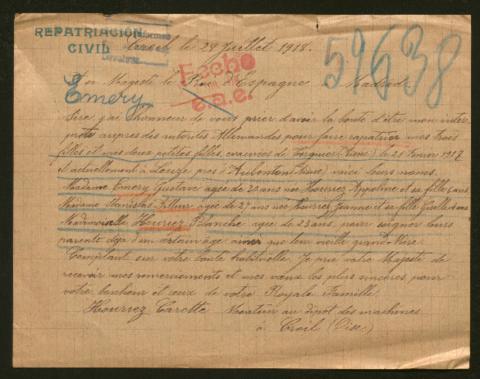 REPATRIACION
CIVIL
le 29 Juillet 1918.
59638
Hecho
e.a.e.
Emery
Sa Majesté le Roi d'Espagne Madrid
Sire j'ai l'honneur de vous prier d'avoir la bonté d'être mon inter
prète auprès des autorités Allemandes pour faire rapatrier mes trois
filles et mes deux petites filles, évacuées de Tergnier (Aisne) le 21 Février 1917
et actuellement à Leuze près d'Aubenton (Aisne) voici leurs noms.
Madame Emery Gustave agée de 28 ans née Hourriez et sa fille
Madame Stanislas agée de 27 ans née Hourriez Jeanne et sa fille
Mademoiselle Hourriez Blanche agée de 23 ans, pour soigner leurs
parents déja d'un certain âge ainsi que leur vieille grand-Mère
Comptant sur votre bonté habituelle Je prie votre Majesté de
recevoir mes remerciements et mes vœux les plus sincères pour
votre bonheur et ceux de votre Royale Famille.
Hourriez Carette au dépôt des machines
à Creil (Oise)